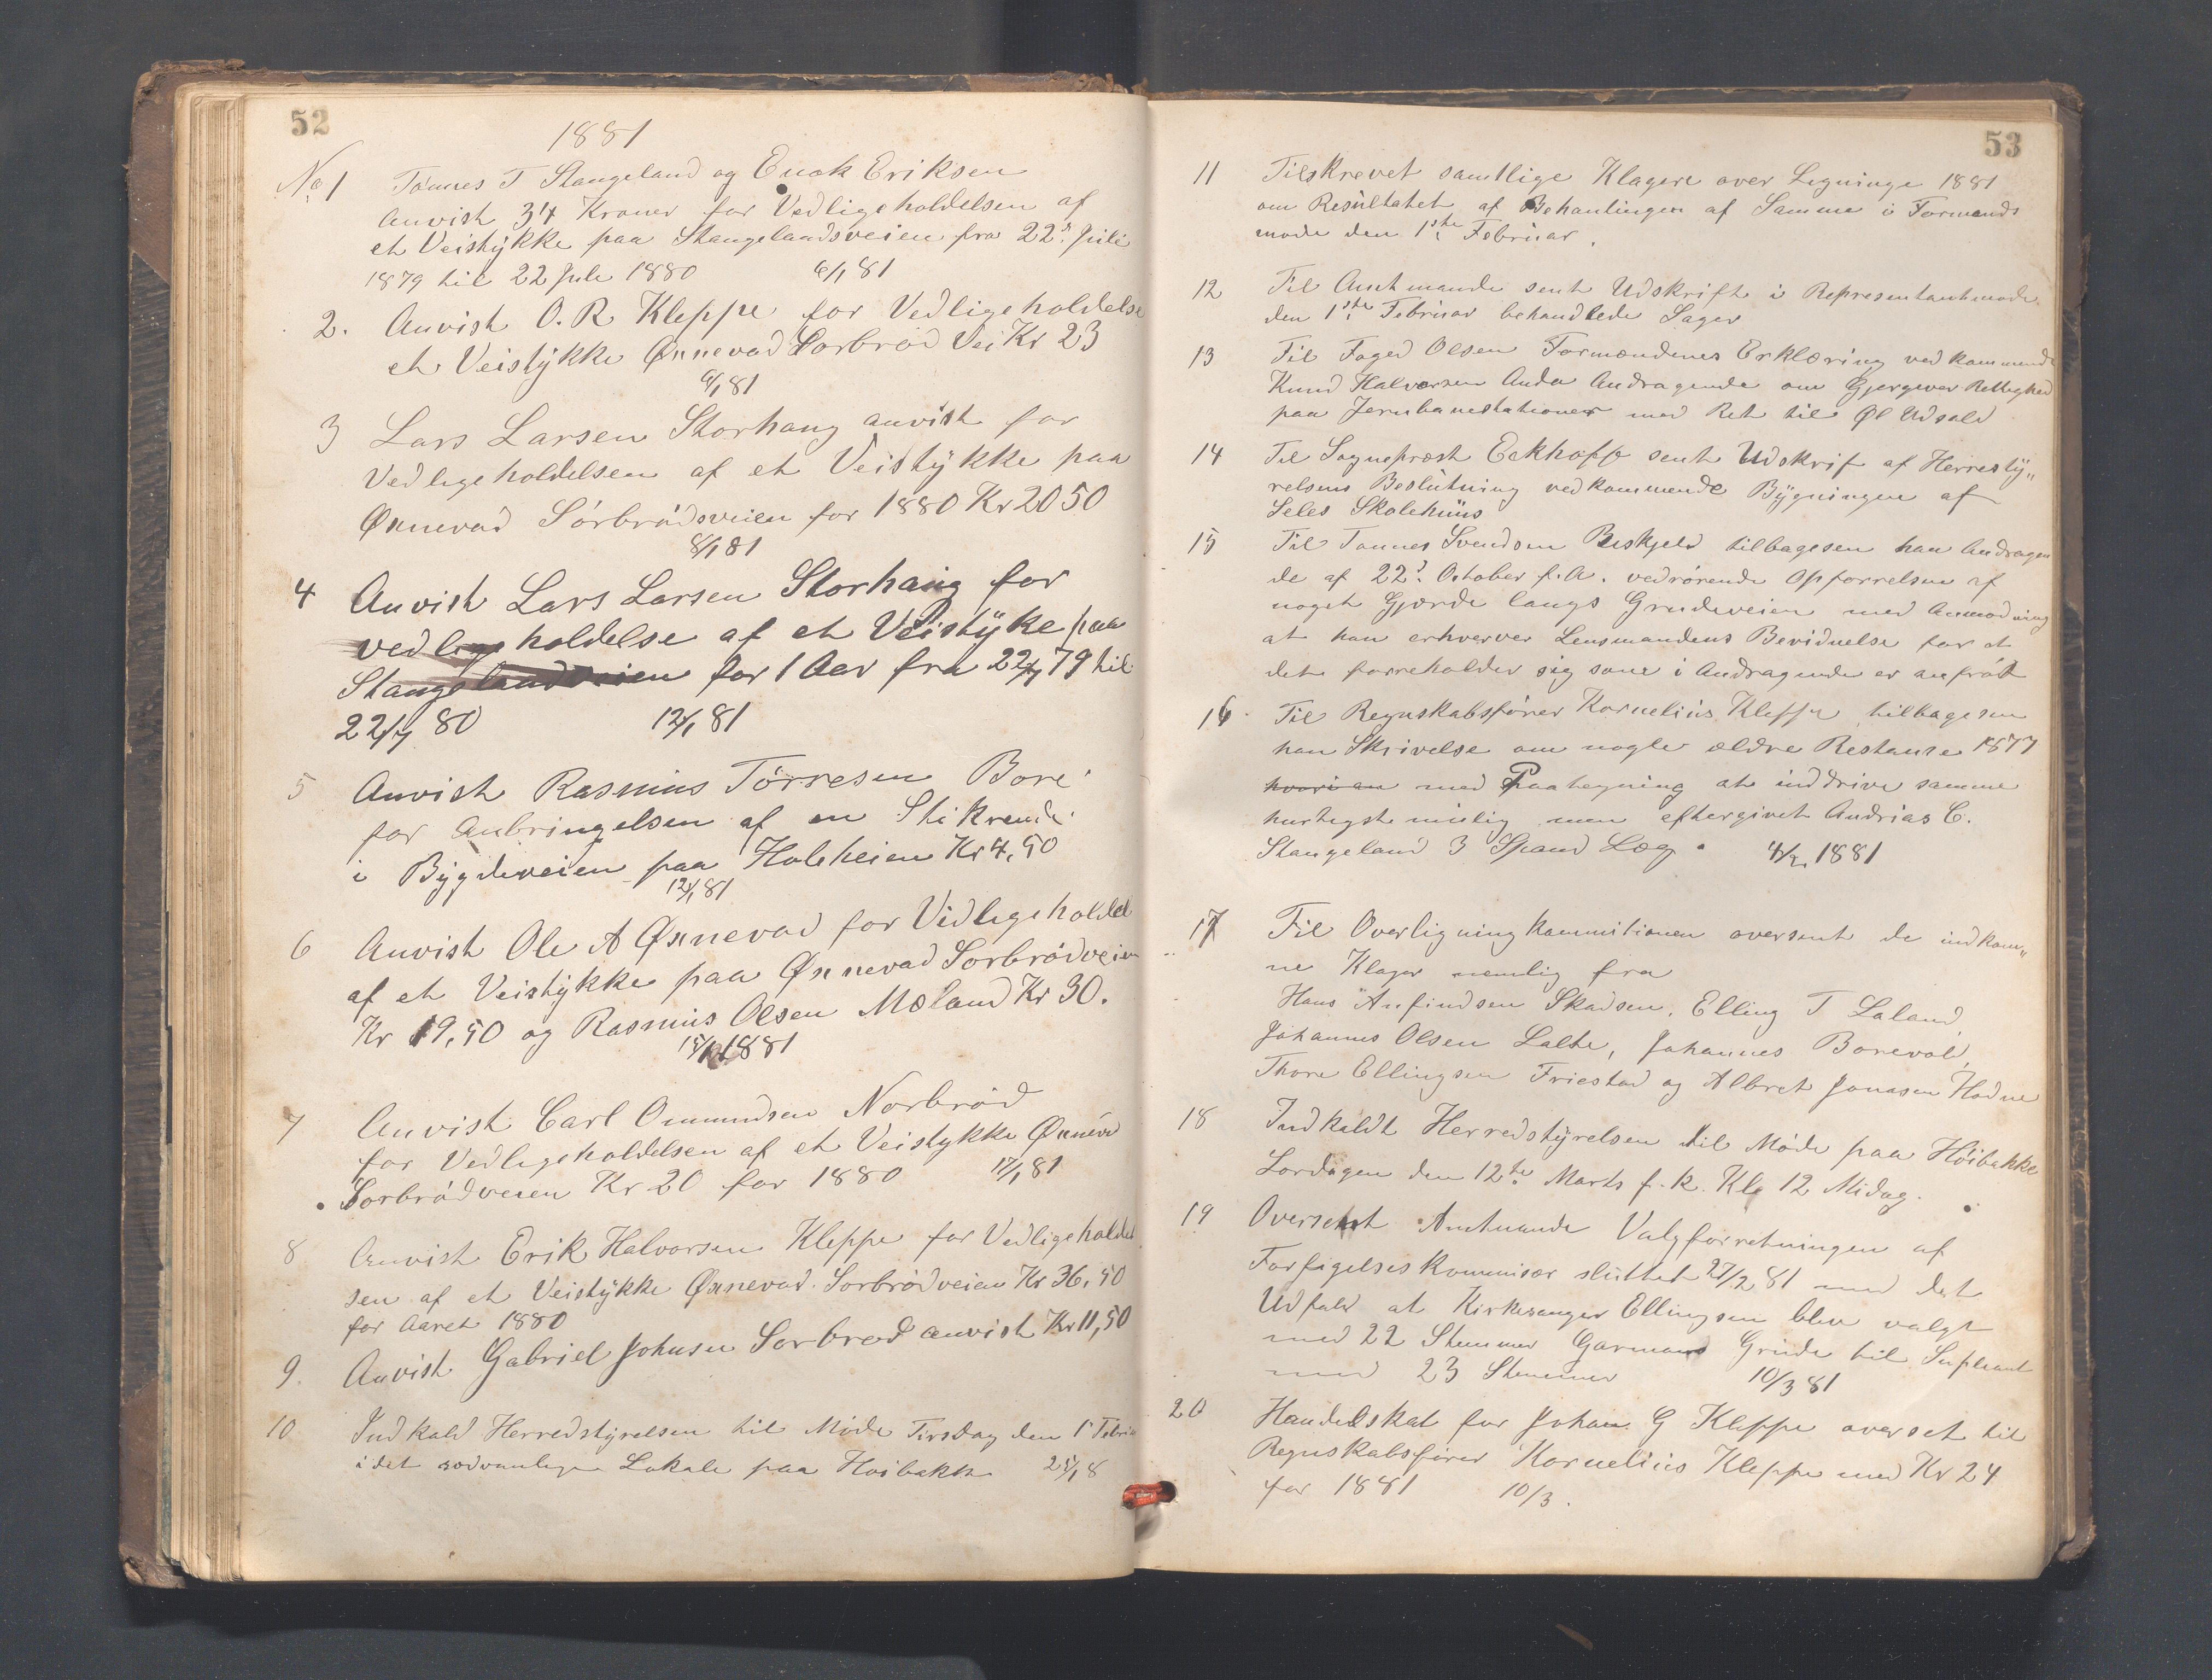 52
1881
No 1 Tönnes T Stangeland og Enok Eriksen
Anvist 34 Kroner for Vedligeholdelsen af
et Veistÿkke paa Stangelandsveien fra 22d Juli
1879 til 22 Juli 1880 6/1 81
2. Anvist O. R Kleppe for Vedligeholdelse
et Veistÿkke Øxnevad Sorbrød Vei Kr 23
6/1 81
3 Lars Larsen Storhaug anvist for
Vedlegeholdelsen af et Veistÿkke paa
Øxnevad Sörbrödsveien for 1880 Kr 20 50
8/1 81
4 Anvist Lars Larsen Storhaug for
vedligeholdelse af et Veistÿke paa
Stangelandveien for 1 Aar fra 22/7 79 til
22/7 80 12/1 81
5 Anvist Rasmus Törresen Bore
for Anbringelsen af en Stikrende
i Bÿgdeveien paa Holeheien Kr 4,50
12/1 81
6 Anvist Ole A Øxnevad for Vidligeholdel
af et Veistÿkke paa Øxnevad Sorbrødveien
Kr 19,50 og Rasmus Olsen Mæland Kr 30.
15/1 1881
7 Anvist Carl Ommundsen Norbrød
for Vedligeholdelsen af et Veistykke Øxneva
Sorbrødveien Kr 20 for 1880 17/1 81
8 Anvist Erik Halvorsen Kleppe for Vedligeholdel
sen af et Veistÿkke Øxnevad Sorbrødveien Kr 36,50
for Aaret 1880
9. Anvist Gabriel Johnsen Sorbrod anvist Kr 11,50
10 Indkald Herredstÿrelsen til Møde Tirsdag den 1 Febru
i det sedvanlige Lokale paa Hoibakke 25/1 8
53
11 Tilskrevet samtlige Klagere over Legninge 1881
om Resultatet af Behantingen af Samme i Formends
mode den 1ste Februar.
12 Til Amtmande sent Udskrift i Representantmode
den 1ste Februar behandlede Sager
13 Til Foged Olsen Formendenes Erklæring vedkommende
Knud Halvorsen Anda Andragende om Gjergiver Rettighed
paa Jernbanestationer med Ret til Øl Udsald
14 Til Sognepræst Eckhoff sent Udskrif af Herrestÿ„
relsens Beslutning vedkommende Bÿgningen af
Seles Skolehuus
15 Til Tonnes Svendsen Beskjeld tilbagesen han Andragen
de af 22d October f. A. vedrørende Opførrelsen af
noget Gjærde langs Grudeveien med Anmodning
at han erhverver Lensmandens Bevidnelse for at
det forreholder sig some i Andragende er anfrøt
16 Til Regnskabsfører Kornelius Kleppe tilbagesen
han Skrivelse om nogle ældre Restanse 1877
hvori an med Paategning at inddrive samme
hurtigste mulig men eftergivet Andrias C.
Stangeland 3 Spand Læg. 4/2 1881
17 Til Overligningkommitionen oversent de indkom„
ne Klager nemlig fra
Hans Anfindsen Skadsem, Elling T Laland,
Johannes Olsen Salte, Johannes Borevold,
Thore Ellingsen Friestad og Albret Jonasen Hodne
18 Indkaldt Herredstÿrelsen til Møde paa Höibakke
Lordagen den 12te Marts f. k. Kle 12 Midag.
19 Oversent Amtmande Valgforretningen af
Forfigelseskommisær sluttet 27/2 81 med det
Udfald at Kirkesanger Ellingsen blev valgt
med 22 Stemmer Garmand Grude til Supleant
med 23 Stemmer 10/3 81
20 Handelskat for Johan G Kleppe overset til
Regnskabsfører Kornelius Kleppe med Kr 24
for 1881 10/3.